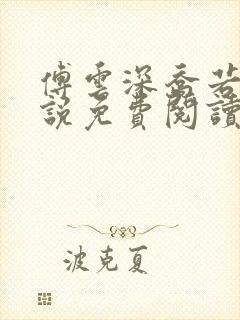 傅雲深喬若
說免費閱讀
波克夏